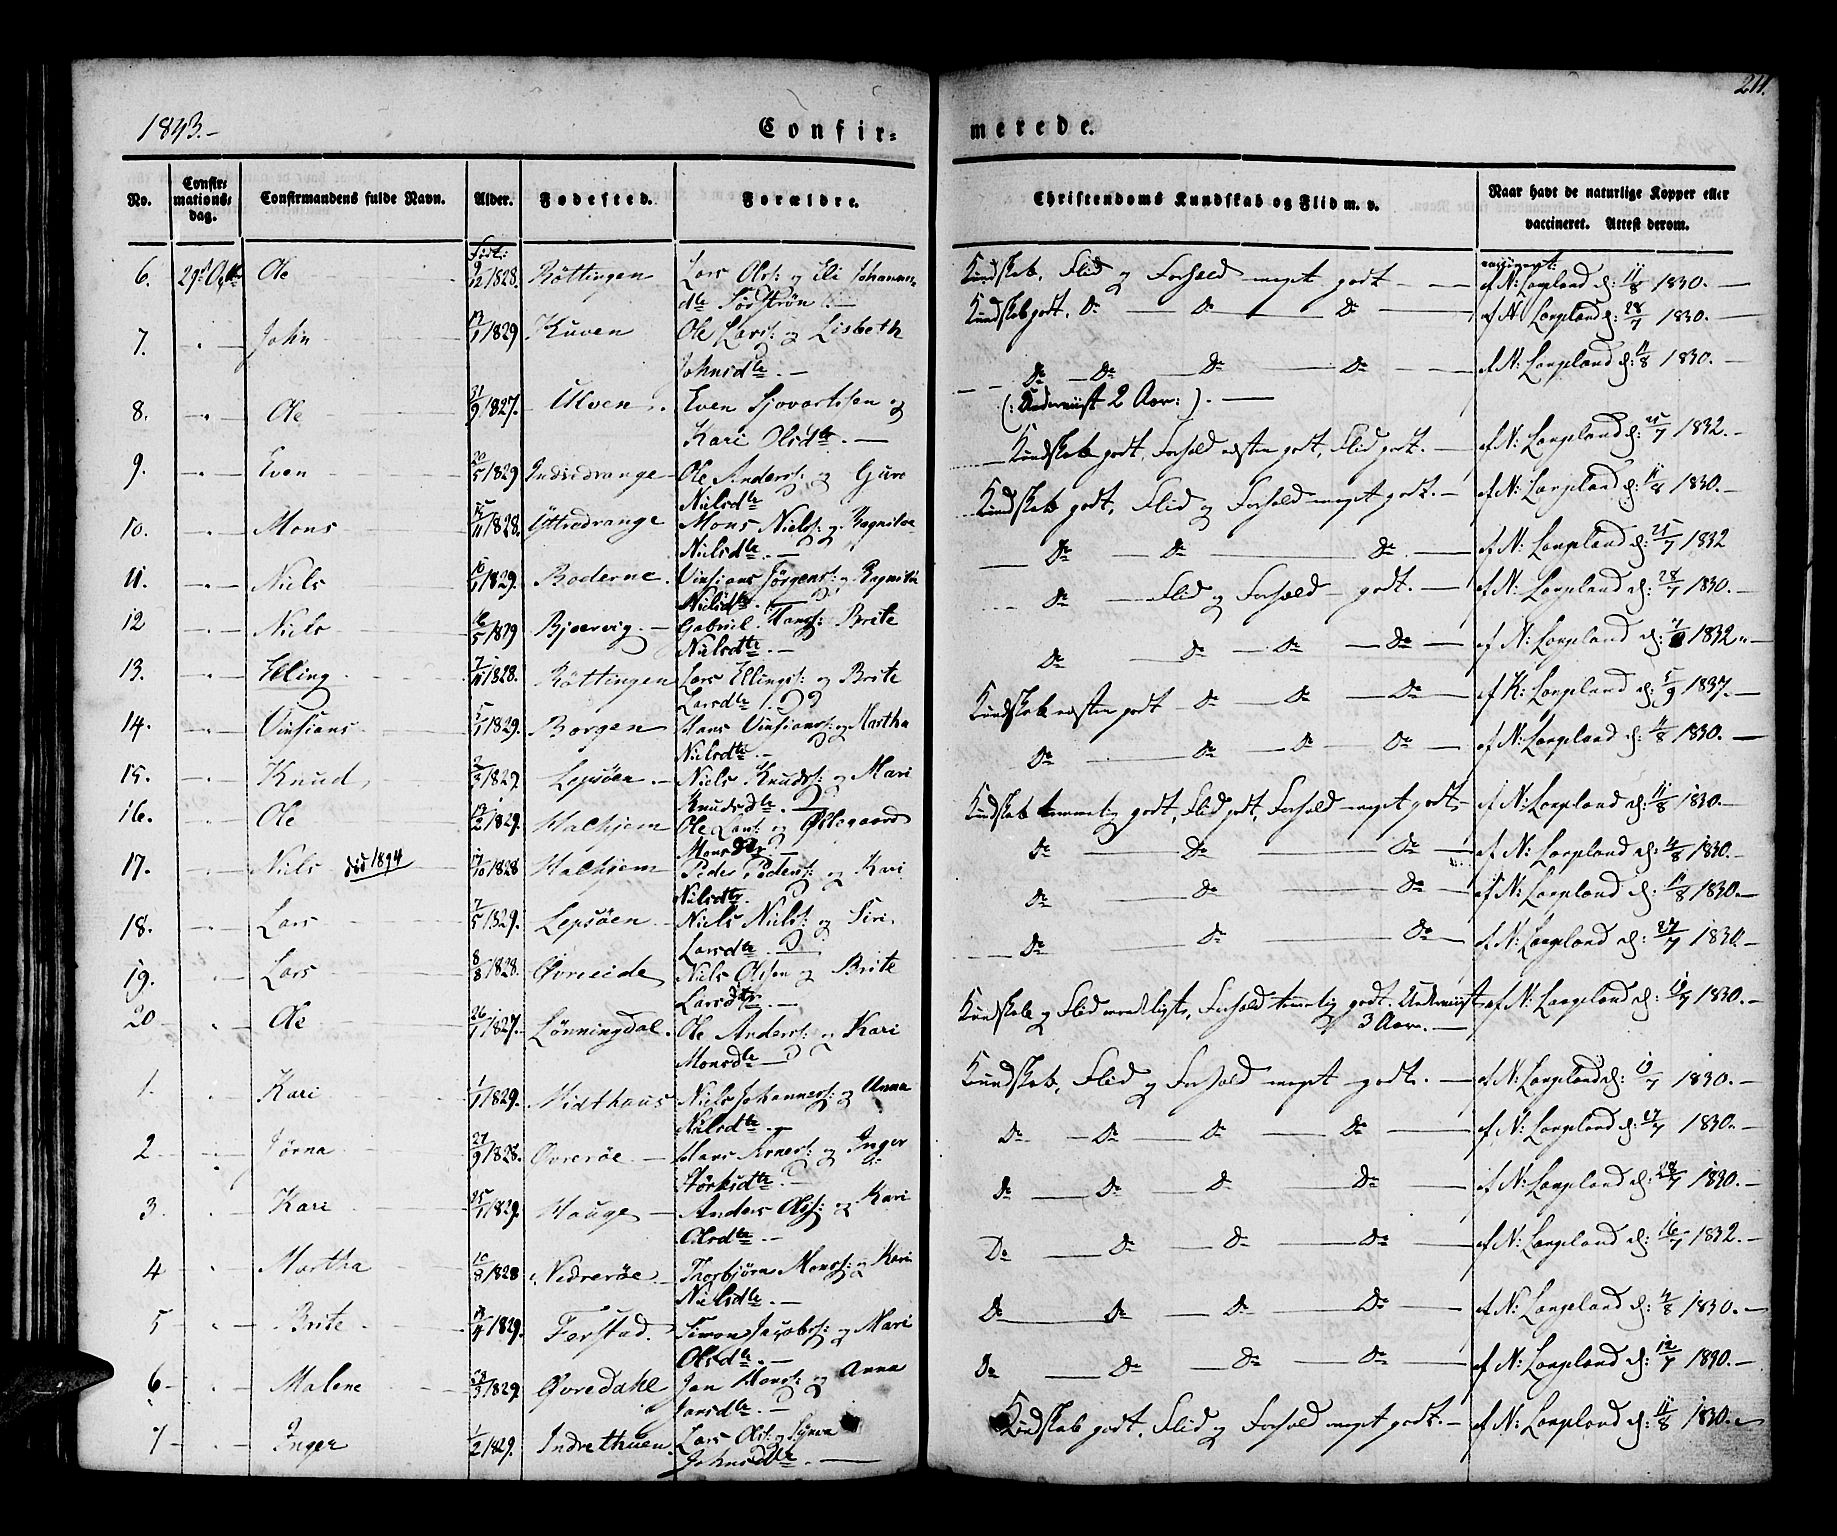 211.
1843.-
Confir=
merede.
No.
Confir=
mations=
dag.
Confirmandens fulde Navn.
Alder.
Fødested.
Forældre.
Christendoms Kundskab og Flid m. v.
Naar havt de naturlige Kopper eller
vaccineret. Attest derom.
6. 29d Octbr Ole 9/12 1828. Röttingen Lars Ols: og Eli Johannes-
dtr Sørstrøn. -
Kundskab, Flid og Forhold meget godt - af N: Langeland d: 11/8 1830. -
7. " John 1829 Kuven Ole Lars: og Lisbeth
Johnsdtr. -
Kundskab godt, Do - Do - Do - af N: Langeland d: 28/7 1830. -
8. " Ole 1827. Ulven. Even Sjovartsen og
Kari Olsdtr. -
Do - Do - Do - Do - af N: Langeland d: 11/8 1830. -
(: Underviist 2 Aar: ). -
9. " Even 1829 Indredrange Ole Anders: og Guro
Nielsdtr
Kundskab godt, Forhold næsten godt, Flid godt. - af N: Langeland d: 25/7 1832. -
10. " Mons 1828. Yttredrange Mons Niels: og Ragnilda
Nielsdtr. -
Kundskab godt, Flid og Forhold meget godt. - af N: Langeland d: 11/8 1830. -
11. " Niels 1829. Roderne. Vinsians Jörgens: og Ragnilda
Nielsdtr. -
Do - Do - Do. - af N: Langeland d: 25/7 1832
12 " Niels 1829 Bjoervig. - Gabriel Hans: Brite
Nielsdtr. -
Do - Flid og Forhold - godt. - af N: Langeland d: 28/7 1830. -
13. " Elling. 1828. Röttingen Lars Ellings: og Brite
Larsdtr.
Do - Do - Do - Do - af N: Langeland 1832. -
14. " Vinsians 1829. Borgen Hans Vinsians: og Martha
Nielsdtr. -
Kundskab næsten godt - Do - Do - Do - af K: Langeland d: 5/9 1837. -
15. " Knud 1829. Lepsöen - Niels Knuds: og Mari
Knudsdtr. -
Do - Do - Do - Do - af N: Langeland d: 11/8 1830. -
16. " Ole 1829. Halhjem Ole Lars: og Øllegaard
Monsdtr -
Kundskab temmelig godt, Flid godt, Forhold meget godt - af N: Langeland d: 11/8 1830. -
17. " Niels död 1894 1828 Halhjem Peder Peders: og Kari
Nielsdtr.
Do - Do - Do - af N: Langeland d: 11/8 1830. -
18. " Lars 7/5 1829. Lepsöen - Niels Niels: og Siri
Larsdtr. -
Do - Do - Do - af N: Langeland d: 11/8 1830. -
19. " Lars 8/8 1828. Øvreeide Niels Olsen og Brite
Larsdtr. -
Do - Do - Do - af N: Langeland d: 27/7 1830. -
20 " Ole 26/1 1827. Lönningdal. Ole Anders: og Kari
Monsdtr -
Kundskab og Flid maadeligt, Forhold temmelig godt. Underviist
3 Aar. - af N: Langeland d: 1830. -
1. " Kari 1/1 1829. Midthuus Niels Johannes: og Anna
Nielsdtr. -
Kundskab, Flid og Forhold meget godt. - af N: Langeland d: 1830. -
2 " Jörna 27/9 1828. Øvreröe. - Hans Arnes: og Inger
Störksdtr. -
Do - Do - Do - Do - af N: Langeland d: 27/7 1830. -
3. " Kari 25/1 1829. Hauge - Anders Ols: og Kari
Olsdtr. -
Do - Do - Do - Do - af N: Langeland d: 28/7 1830. -
4 " Martha 1828 Nedreröe - Thorbjörn Mons: og Kari
Nielsdtr. -
Do - Do - Do - Do - af N: Langeland d: 16/7 1832. -
5 " Brite 1829. Forstad. Simon Jacobs: og Mari
Olsdtr. -
Do - Do - Do - Do - af N: Langeland d: 11/8 1830. -
6 " Malene 1829. Øvredahl Jan Hans: og Anna
Larsdtr. -
Do - Do - Do - Do - af N: Langeland d: 12/7 1830. -
7 " Inger 1/2 1829. Indrethuen. Lars Ols: og Synva
Johnsdtr. -
Kundskab godt, Flid og Forhold meget godt. - af N: Langeland d: 11/8 1830. -